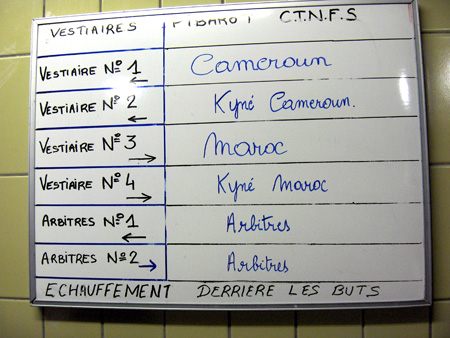 VESTIAIRES PIBAROT C.T.N.F.S
VESTIAIRE Nº 1 ← Cameroun
VESTIAIRE Nº 2 ← Kyné Cameroun.
VESTIAIRE Nº 3 → Maroc
VESTIAIRE Nº 4 → Kyné Maroc
ARBITRES Nº 1 ← Arbitres
ARBITRES Nº 2 → Arbitres
ECHAUFFEMENT DERRIERE LES BUTS